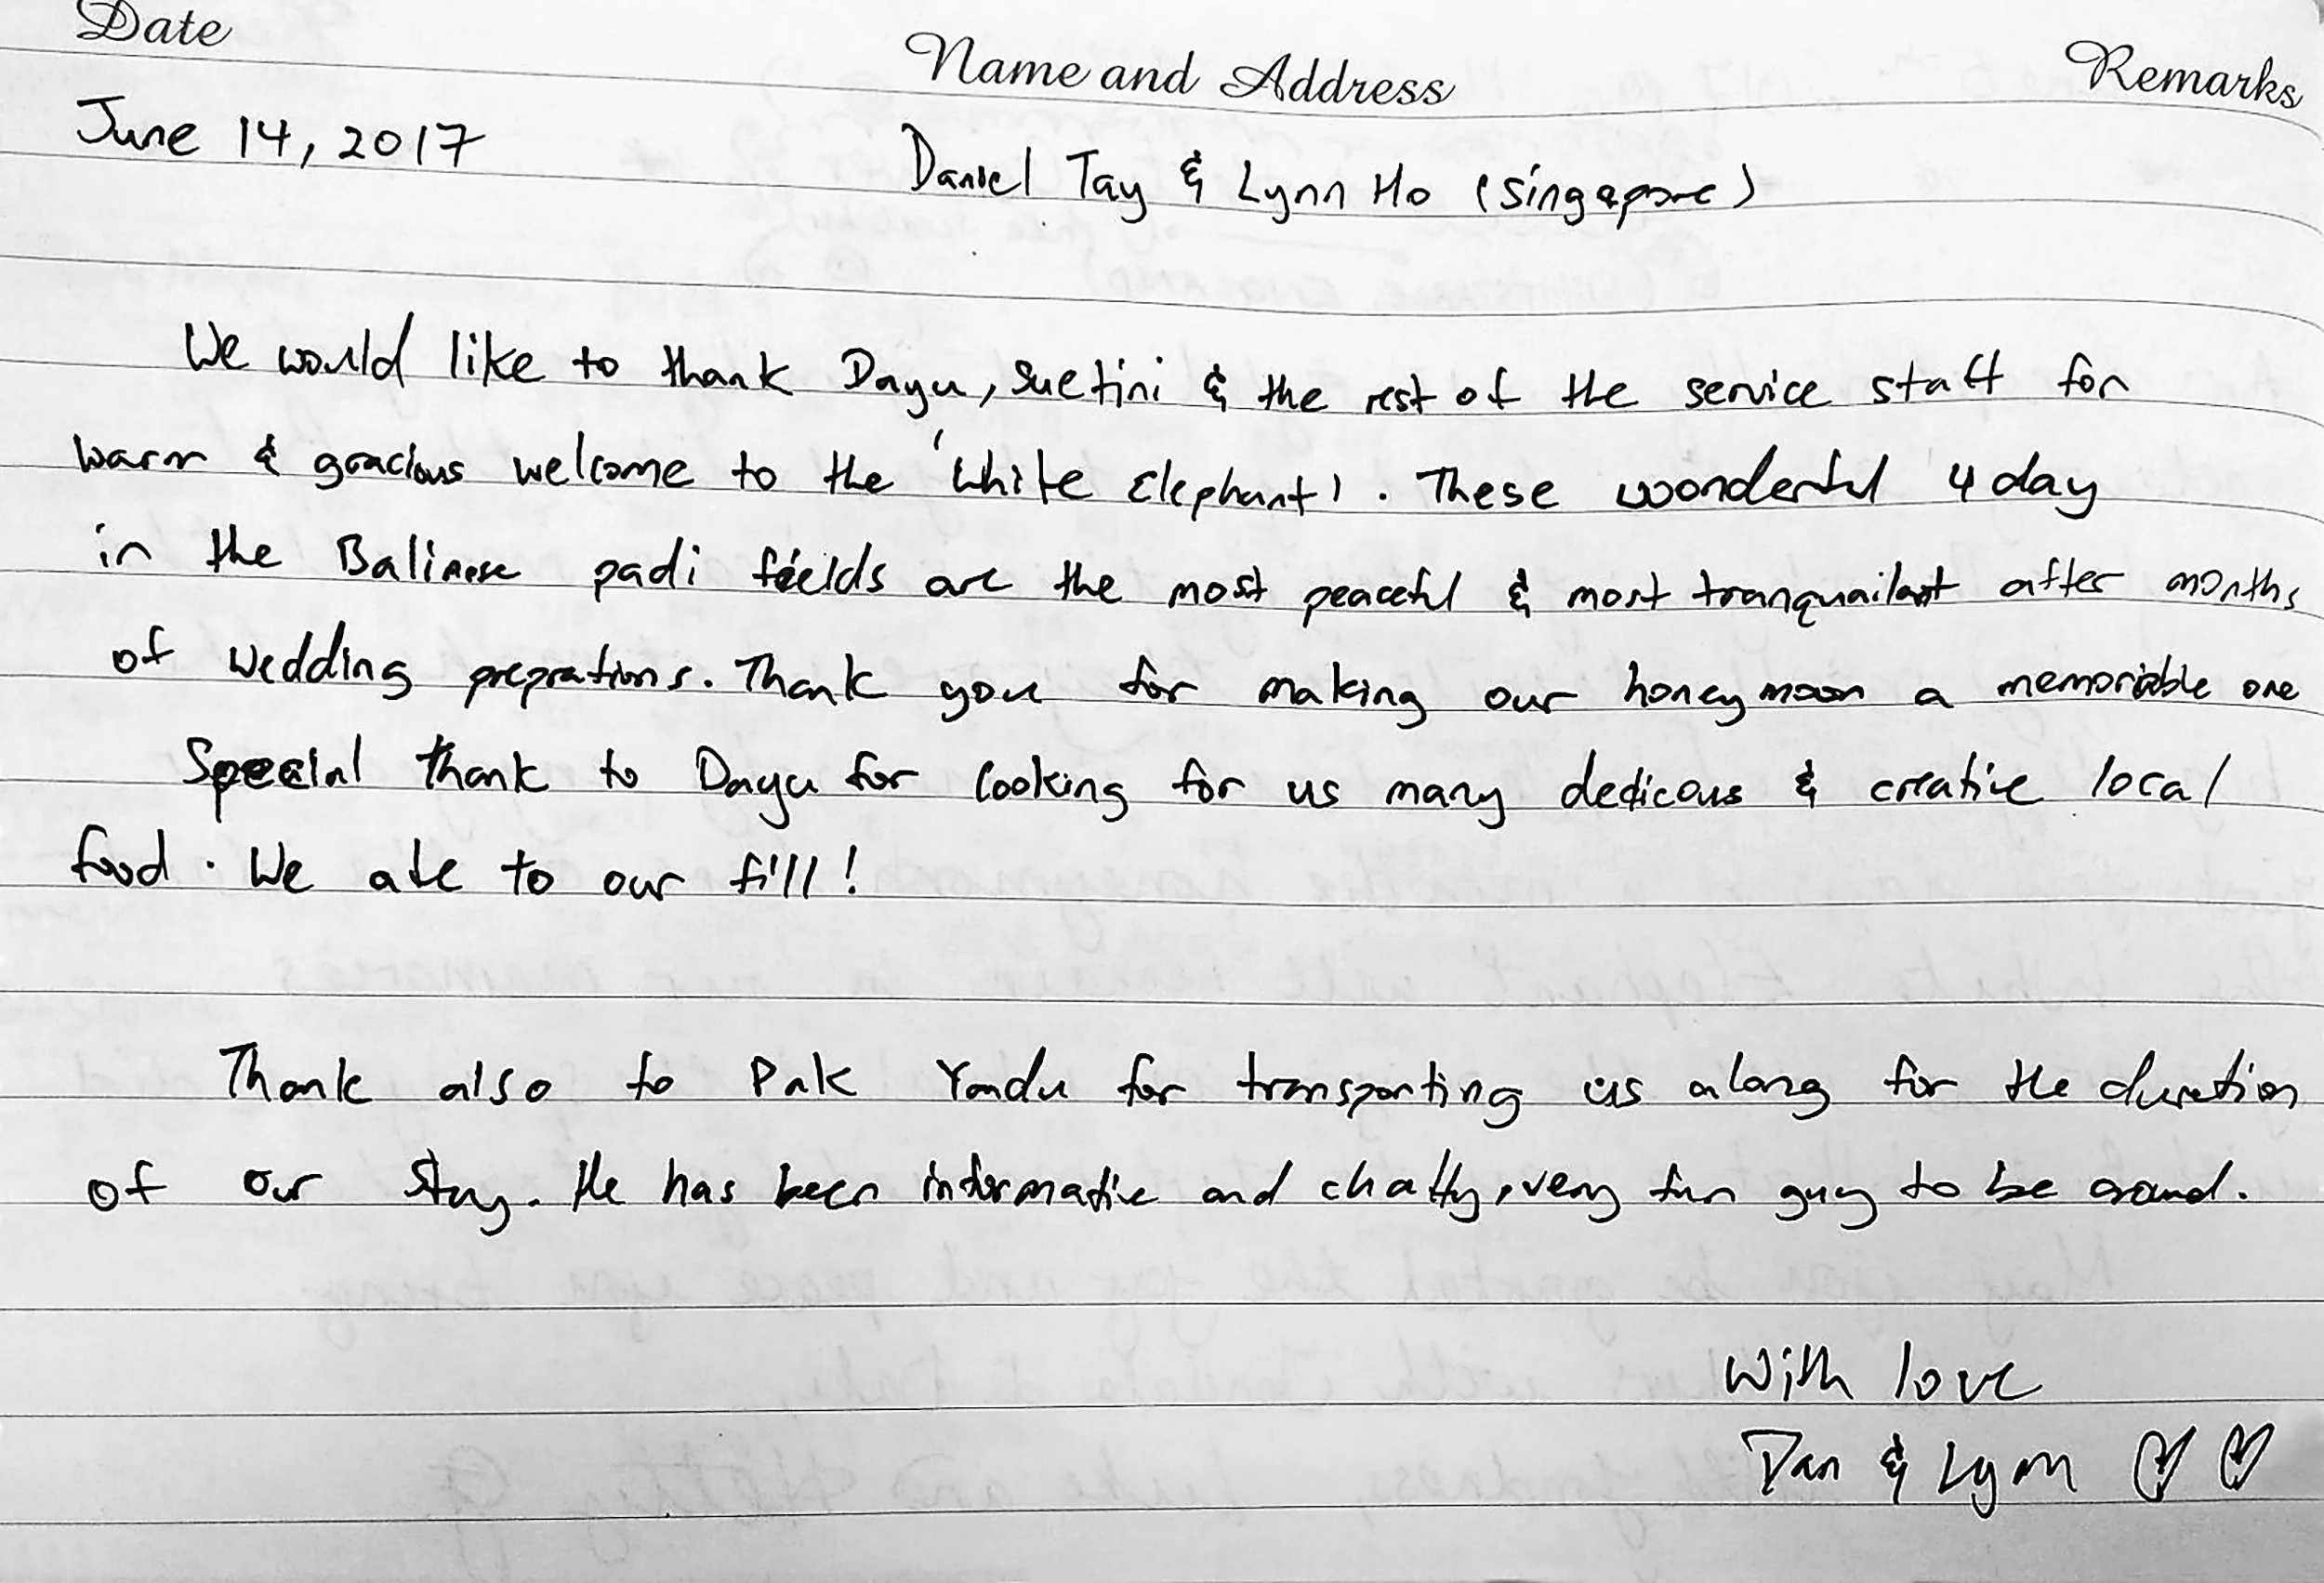 Date
Name and Address
Remarks
June 14, 2017
Daniel Tay & Lynn Ho (Singapore)
We would like to thank Dayu, Suetini & the rest of the service staff for
warm & gracious welcome to the 'White Elephant'. These wonderful 4 day
in the Balinese padi fields are the most peaceful & most tranquailant after months
of wedding preprations. Thank you for making our honeymoon a memorable one
Special thank to Dayu for cooking for us many dedicous & creative local
food. We ate to our fill!
Thank also to Pak Yandu for transporting us along for the duration
of our stay. He has been informative and chatty, very fun guy to be around.
With love
Dan & Lynn